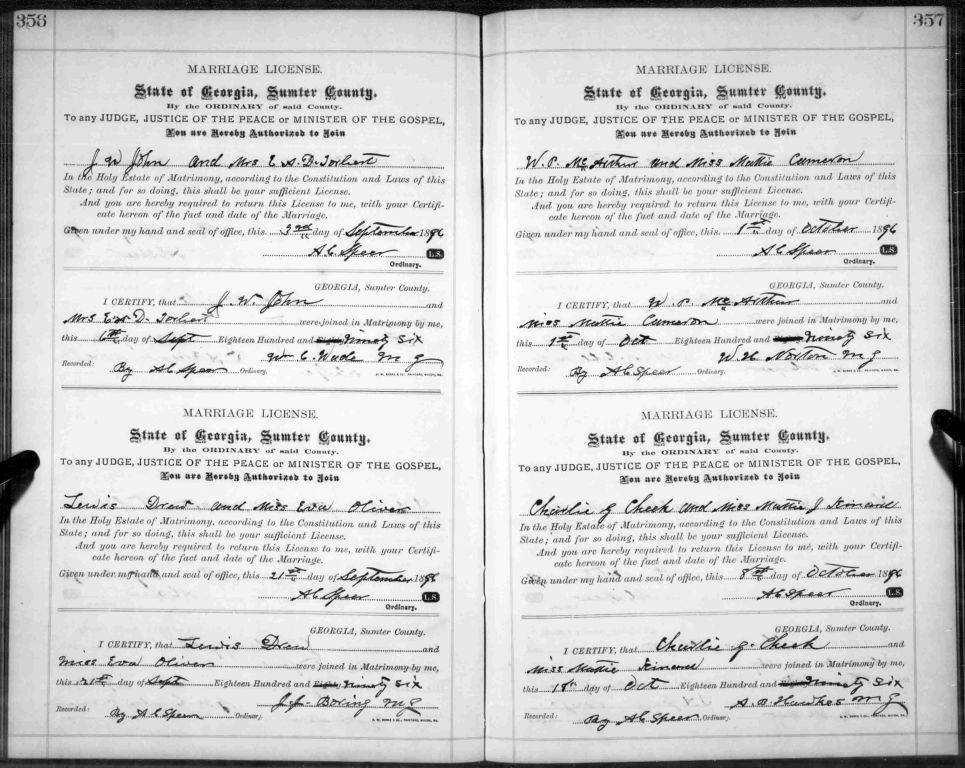 356
MARRIAGE LICENSE.
State of Georgia, Sumter County.
By the ORDINARY of said County.
To any JUDGE, JUSTICE OF THE PEACE or MINISTER OF THE GOSPEL,
You are Hereby Authorized to Join
J W John and Mrs E A D Torbert
In the Holy Estate of Matrimony, according to the Constitution and Laws of this
State; and for so doing, this shall be your sufficient License.
And you are hereby required to return this License to me, with your Certifi-
cate hereon of the fact and date of the Marriage.
Given under my hand and seal of office, this 3rd day of September 1896
A C Speer L.S.
Ordinary.
GEORGIA, Sumter County.
I CERTIFY, that J. W. John and
Mrs E A D. Torbert were joined in Matrimony by me,
this 6th day of Sept Eighteen Hundred and Ninety Six
Wm C. Wade M G
Recorded: By A C Speer Ordinary.
MARRIAGE LICENSE.
State of Georgia, Sumter County.
By the ORDINARY of said County.
To any JUDGE, JUSTICE OF THE PEACE or MINISTER OF THE GOSPEL,
You are Hereby Authorized to Join
Lewis Drew and Miss Eva Oliver
In the Holy Estate of Matrimony, according to the Constitution and Laws of this
State; and for so doing, this shall be your sufficient License.
And you are hereby required to return this License to me, with your Certifi-
cate hereon of the fact and date of the Marriage.
Given under my hand and seal of office, this 21st day of September 1896
A C Speer L.S.
Ordinary.
GEORGIA, Sumter County.
I CERTIFY, that Lewis Drew and
Miss Eva Oliver were joined in Matrimony by me,
this 21st day of Sept Eighteen Hundred and Ninety Six
Boring M G
Recorded: By A C Speer Ordinary.
357
MARRIAGE LICENSE.
State of Georgia, Sumter County.
By the ORDINARY of said County.
To any JUDGE, JUSTICE OF THE PEACE or MINISTER OF THE GOSPEL,
You are Hereby Authorized to Join
W. P. McArthur and Miss Mattie Cameron
In the Holy Estate of Matrimony, according to the Constitution and Laws of this
State; and for so doing, this shall be your sufficient License.
And you are hereby required to return this License to me, with your Certifi-
cate hereon of the fact and date of the Marriage.
Given under my hand and seal of office, this 1st day of October 1896
A C Speer L.S.
Ordinary.
GEORGIA, Sumter County.
I CERTIFY, that W. P. McArthur and
Miss Mattie Cameron were joined in Matrimony by me,
this 1st day of Oct Eighteen Hundred and Ninety Six
W. H. Norton M G
Recorded: By A C Speer Ordinary.
MARRIAGE LICENSE.
State of Georgia, Sumter County.
By the ORDINARY of said County.
To any JUDGE, JUSTICE OF THE PEACE or MINISTER OF THE GOSPEL,
You are Hereby Authorized to Join
Charlie G Cheek and Miss Mattie J
In the Holy Estate of Matrimony, according to the Constitution and Laws of this
State; and for so doing, this shall be your sufficient License.
And you are hereby required to return this License to me, with your Certifi-
cate hereon of the fact and date of the Marriage.
Given under my hand and seal of office, this 8th day of October 1896
A C Speer L.S.
Ordinary.
GEORGIA, Sumter County.
I CERTIFY, that Charlie G. Cheek and
Miss Mattie were joined in Matrimony by me,
this day of Oct Eighteen Hundred and Ninety Six
A. B. Hawkes M G
Recorded: By A C Speer Ordinary.